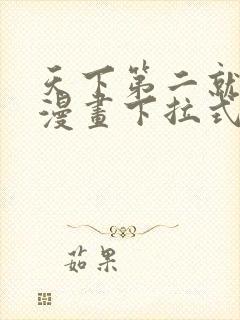 天下第二就
漫畫下拉式
茹果